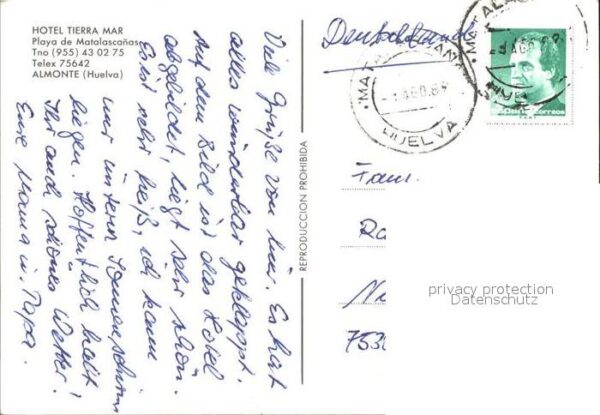 HOTEL TIERRA MAR
Playa de Matalascañas
Tno (955) 43 02 75
Telex 75642
ALMONTE (Huelva)
Viele Grüße von hier. Es hat
alles wunderbar geklappt.
Auf dem Bild ist das Hotel
abgebildet, liegt sehr schön.
Es ist sehr heiß, ich kann
nur unterm Sonnenschirm
liegen. Hoffentlich habt
Ihr auch schönes Wetter!
Eure Mama u. Papa.
REPRODUCCION PROHIBIDA
Deutschland
MATALASCAÑAS
AGO.
HUELVA
correos
Fam.
Ra
Nu
753
privacy protection
Datenschutz